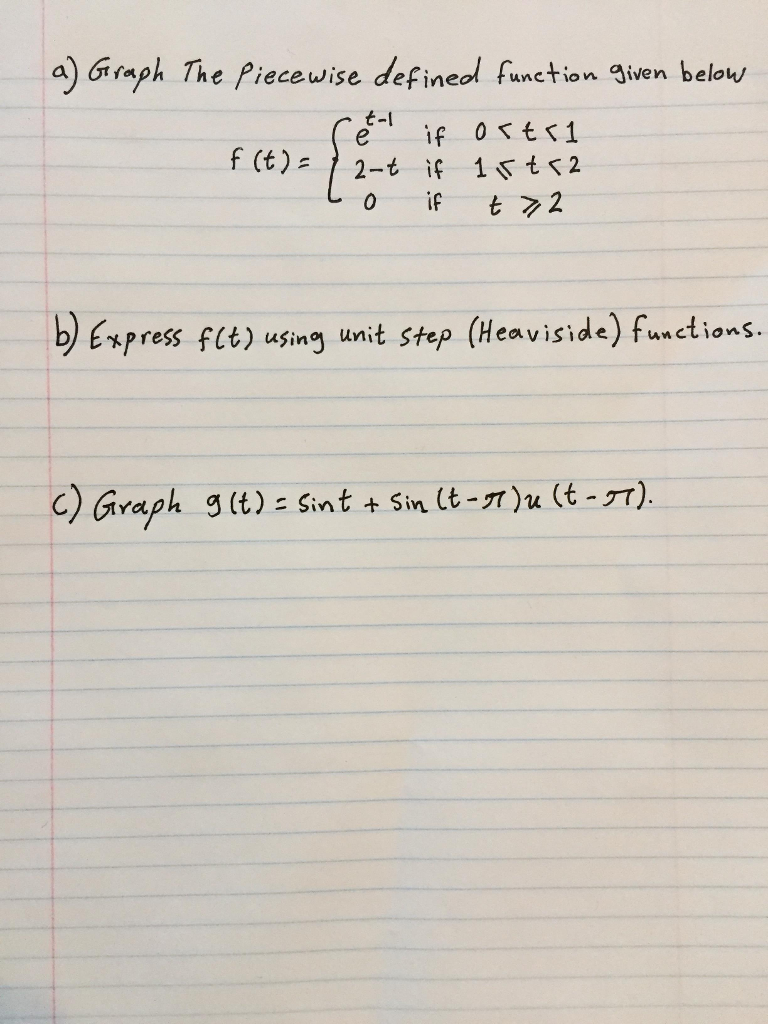 a) Graph The Piecewise defined function given below
f(t) = { e^(t-1) if 0 < t < 1
2-t if 1 ⩽ t < 2
0 if t ⩾ 2
b) Express f(t) using unit step (Heaviside) functions.
c) Graph g(t) = sint + sin(t-π)u(t-π).